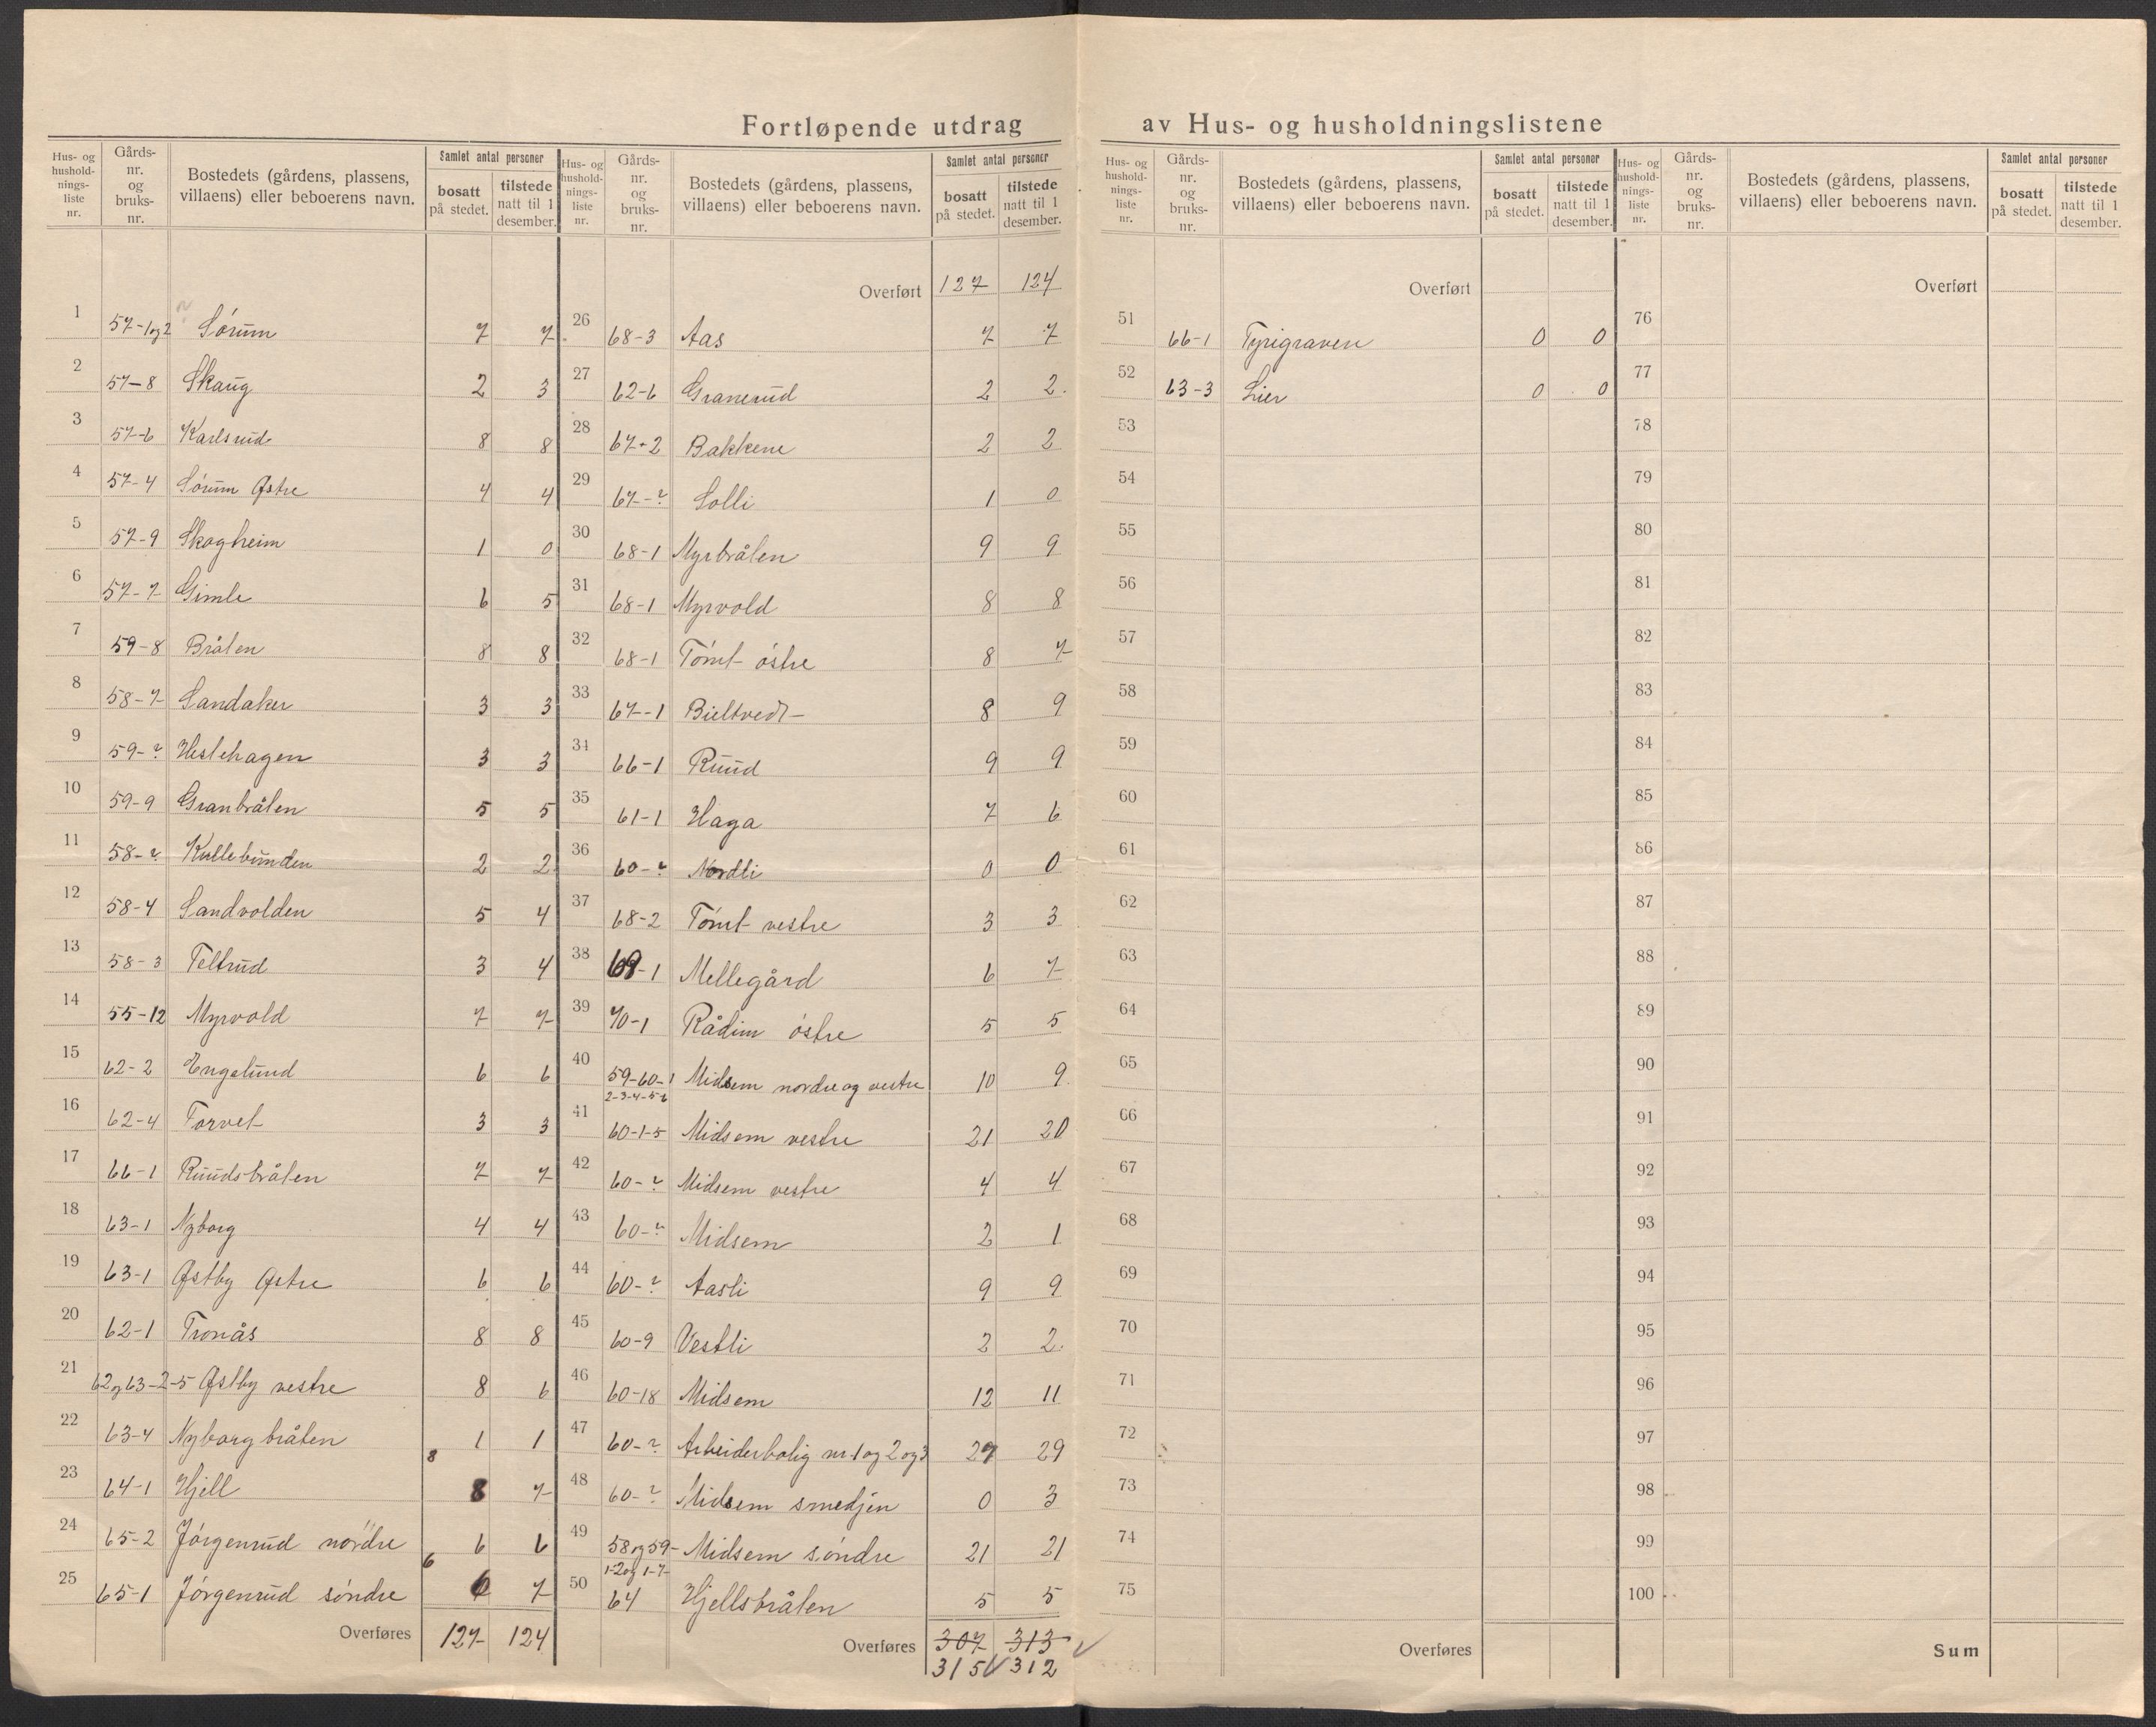 Fortløpende utdrag av Hus- og husholdningslistene
Hus- og hushold-nings-liste nr. Gårds-nr. og bruks-nr. Bostedets (gårdens, plassens, villaens) eller beboerens navn. Samlet antal personer bosatt på stedet. tilstede natt til 1 desember.
1 57-1og2 Sørum 7 7
2 57-8 Skaug 2 3
3 57-6 Karlsrud 8 8
4 57-4 Sørum Østre 4 4
5 57-9 Skogheim 1 0
6 57-7 Gimle 6 5
7 59-8 Bråten 8 8
8 58-7 Sandaker 3 3
9 59-? Hestehagen 3 3
10 59-9 Granbråten 5 5
11 58-? Kullebunden 2 2
12 58-4 Sandvolden 5 4
13 58-3 Teltrud 3 4
14 55-12 Myrvold 7 7
15 62-2 Engelund 6 6
16 62-4 Torvet 3 3
17 66-1 Ruudsbråten 7 7
18 63-1 Nyborg 4 4
19 63-1 Østby Østre 6 6
20 62-1 Tronås 8 8
21 62og63-2-5 Østby vestre 8 6
22 63-4 Nyborgbråten 1 1
8
23 64-1 Hjell 8 7
24 65-2 Jørgenrud nordre 6 6
6
25 65-1 Jørgenrud søndre 6 7
Overføres 127 124
Hus- og hushold-nings-liste nr. Gårds-nr. og bruks-nr. Bostedets (gårdens, plassens, villaens) eller beboerens navn. Samlet antal personer bosatt på stedet. tilstede natt til 1 desember.
Overført 127 124
26 68-3 Aas 7 7
27 62-6 Granerud 2 2
28 67-2 Bakkene 2 2
29 67-? Solli 1 0
30 68-1 Myrbråten 9 9
31 68-1 Myrvold 8 8
32 68-1 Tømt østre 8 7
33 67-1 Bieltvedt 8 9
34 66-1 Ruud 9 9
35 61-1 Haga 7 6
36 60-? Nordli 0 0
37 68-2 Tømt vestre 3 3
38 69-1 Mellegård 6 7
39 70-1 Rådim østre 5 5
40 59-60-1 2-3-4-5-6 Midsem nordre og vestre 10 9
41 60-1-5 Midsem vestre 21 20
42 60-? Midsem vestre 4 4
43 60-? Midsem 2 1
44 60-? Aasli 9 9
45 60-9 Vestli 2 2
46 60-18 Midsem 12 11
47 60-? Arbeiderbolig nr. 1 og 2 og 3 27 29
48 60-? Midsem smedjen 0 3
49 58og59- 1-2og 1-7 Midsem søndre 21 21
50 64 Hjellsbråten 5 5
Overføres 307 313
315 312
Hus- og hushold-nings-liste nr. Gårds-nr. og bruks-nr. Bostedets (gårdens, plassens, villaens) eller beboerens navn. Samlet antal personer bosatt på stedet. tilstede natt til 1 desember.
Overført
51 66-1 Tyrigraven 0 0
52 63-3 Lier 0 0
53
54
55
56
57
58
59
60
61
62
63
64
65
66
67
68
69
70
71
72
73
74
75
Overføres
Hus- og hushold-nings-liste nr. Gårds-nr. og bruks-nr. Bostedets (gårdens, plassens, villaens) eller beboerens navn. Samlet antal personer bosatt på stedet. tilstede natt til 1 desember.
Overført
76
77
78
79
80
81
82
83
84
85
86
87
88
89
90
91
92
93
94
95
96
97
98
99
100
Sum